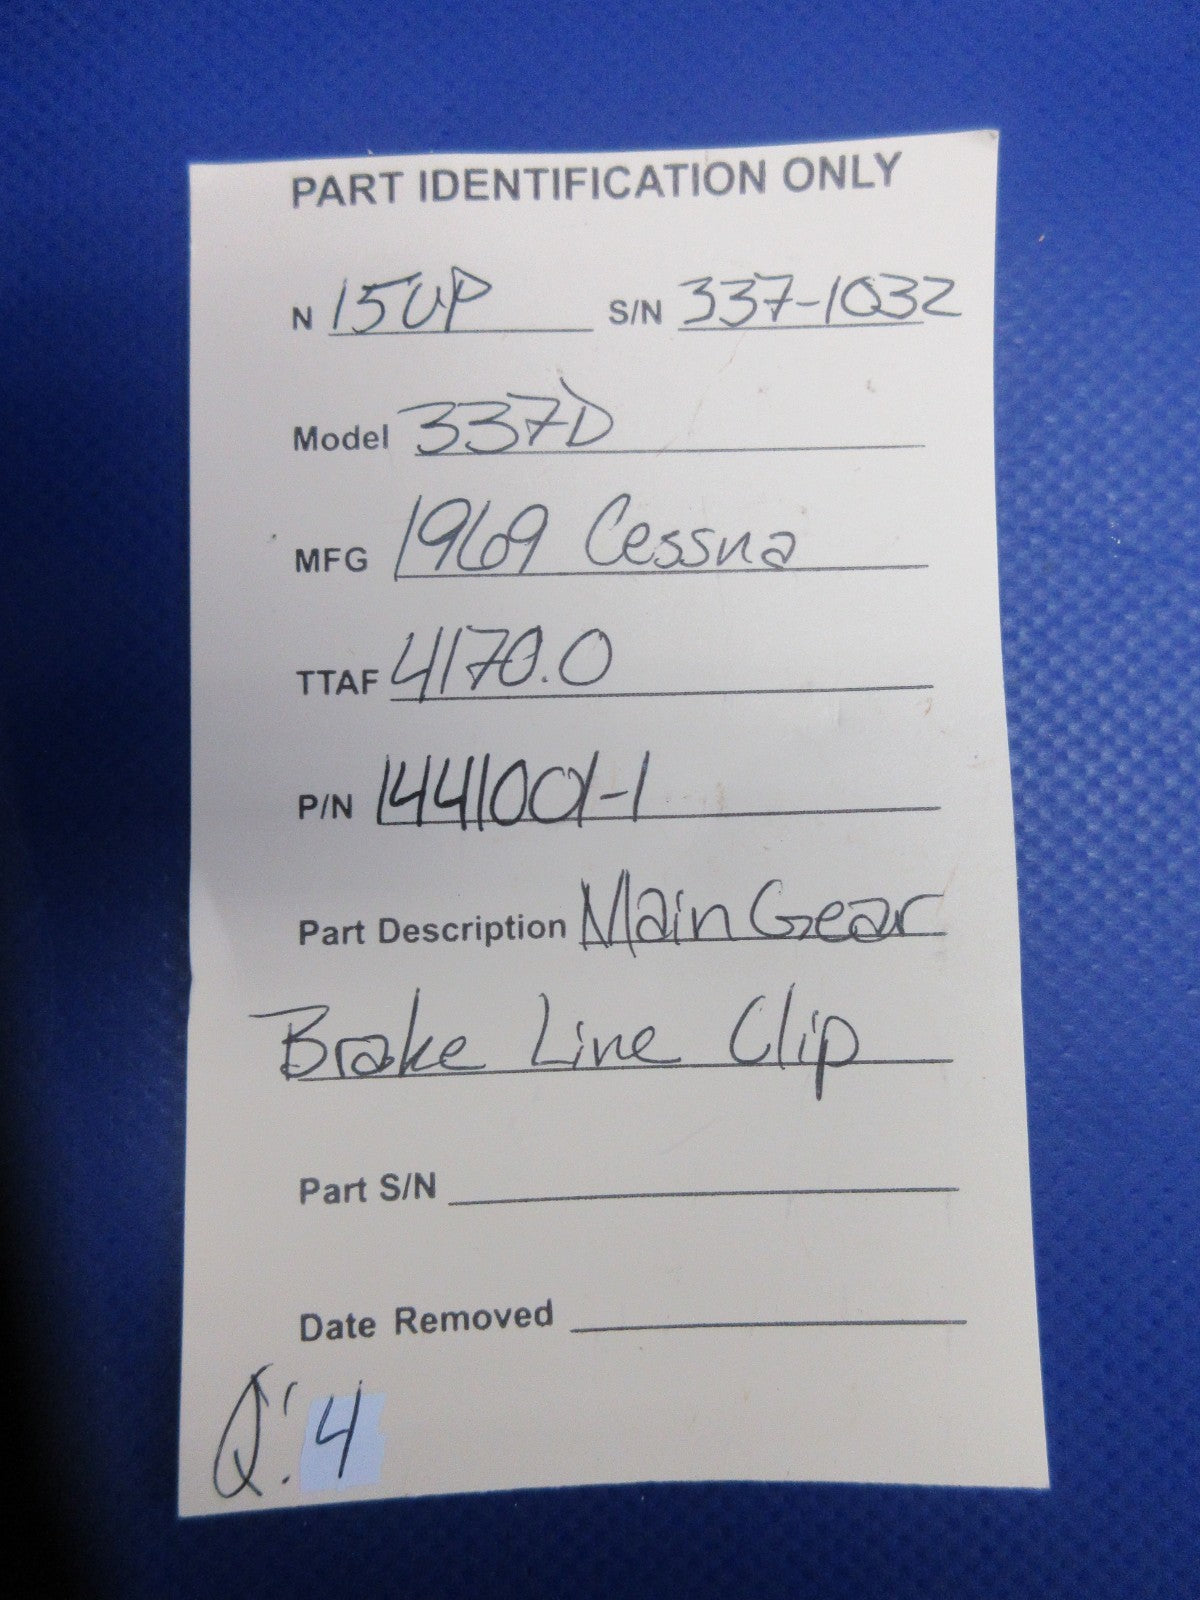 PART IDENTIFICATION ONLY
N 15UP S/N 337-1032
Model 337D
MFG 1969 Cessna
TTAF 4170.0
P/N 1441001-1
Part Description Main Gear
Brake Line Clip
Part S/N
Date Removed
Q: 4